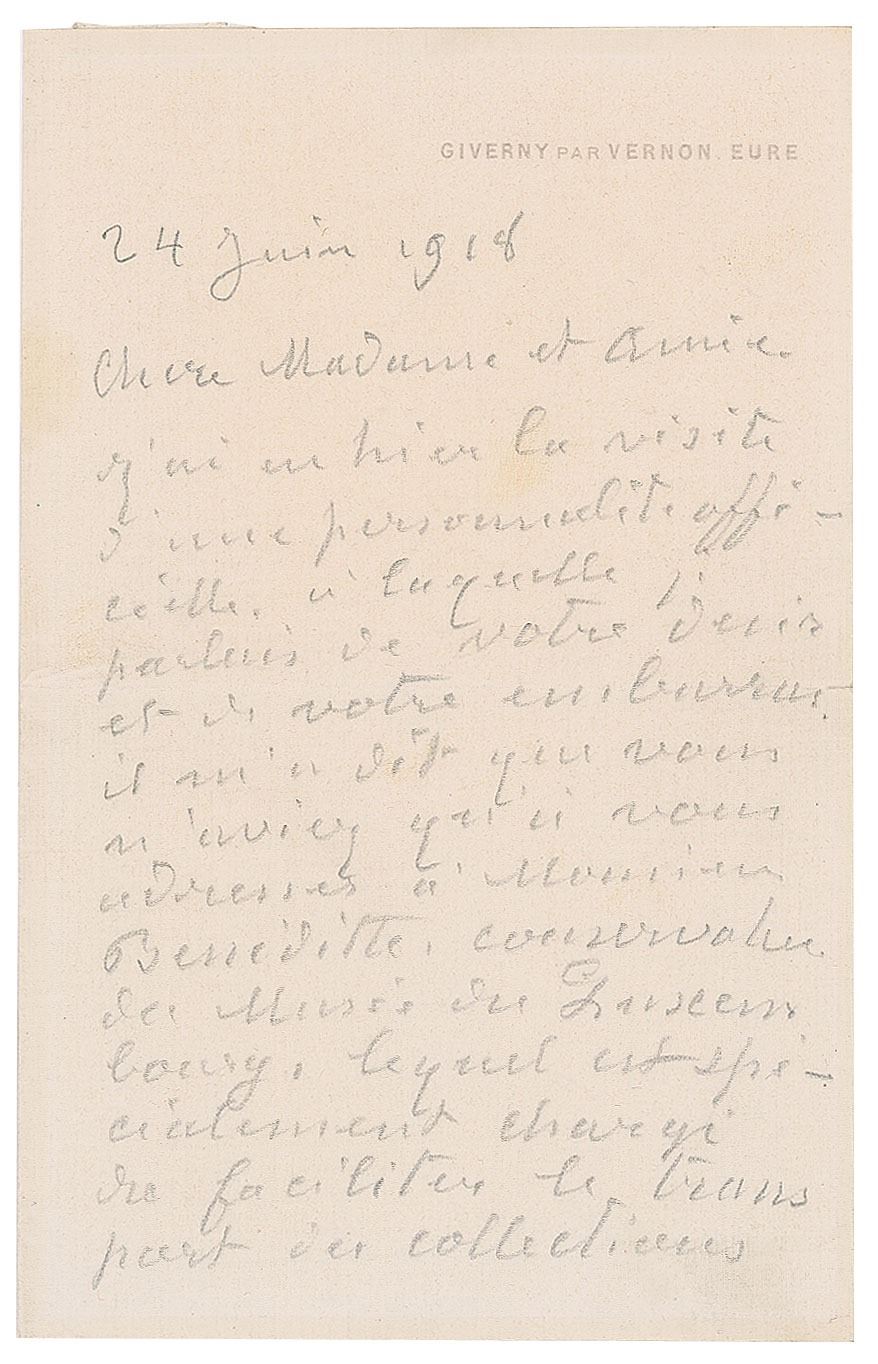 GIVERNY PAR VERNON. EURE
24 Juin 1918
Chère Madame et Amie.
j'ai eu hier la visite
d'une personnalité offi-
cielle, à laquelle j'
parlais de votre désir
et de votre embarras.
il m'a dit que vous
n'aviez qu'à vous
adresser à Monsieur
Bénéditte, conservateur
du Musée du Luxem
bourg, lequel est spé-
cialement chargé
de faciliter le trans
port des collections